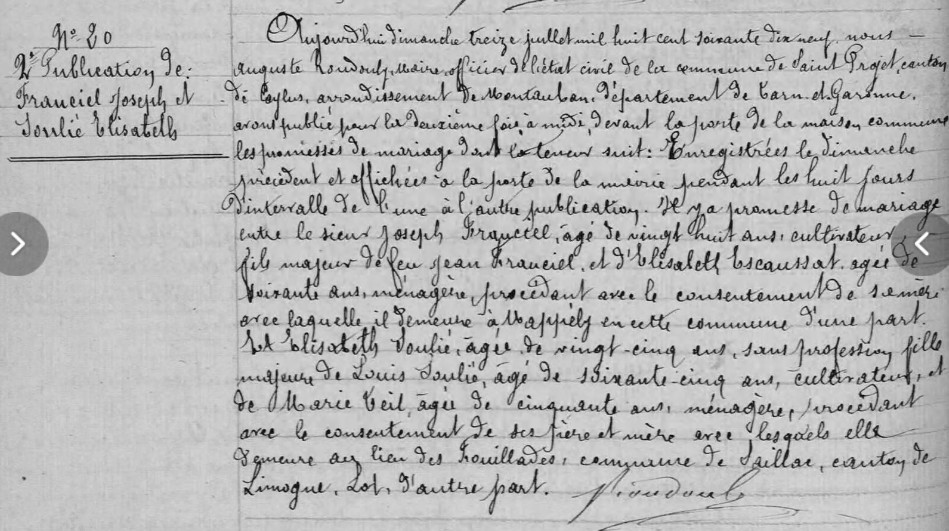 N° 20
2e Publication de:
Franciel Joseph et
Soulié Elisabeth
Aujourd'hui dimanche treize juillet mil huit cent soixante dix neuf, nous —
Auguste Rondoul, Maire, officier de l'état civil de la commune de Saint Projet, canton
de Caylus, arrondissement de Montauban, département de Tarn-et-Garonne,
avons publié pour la deuxième fois à midi, devant la porte de la maison commune
les promesses de mariage dont la teneur suit: Enregistrées le dimanche
précédent et affichées à la porte de la mairie pendant les huit jours
d'intervalle de l'une à l'autre publication. Il y a promesse de mariage
entre le sieur Joseph Franciel, âgé de vingt huit ans, cultivateur,
fils majeur de feu Jean Franciel, et d'Elisabeth Escaussat, agée de
soixante ans, ménagère, procédant avec le consentement de sa mère
avec laquelle il demeure à en cette commune d'une part.
Et Elisabeth Soulié, âgée de vingt-cinq ans, sans profession fille
majeure de Louis Soulié, âgé de soixante-cinq ans, cultivateur, et
de Marie Teil, âgée de cinquante ans, ménagère, procédant
avec le consentement de ses père et mère avec lesquels elle
demeure au lieu des Fouillades, commune de Saillac, canton de
Limogne, Lot, d'autre part.
Rondoul